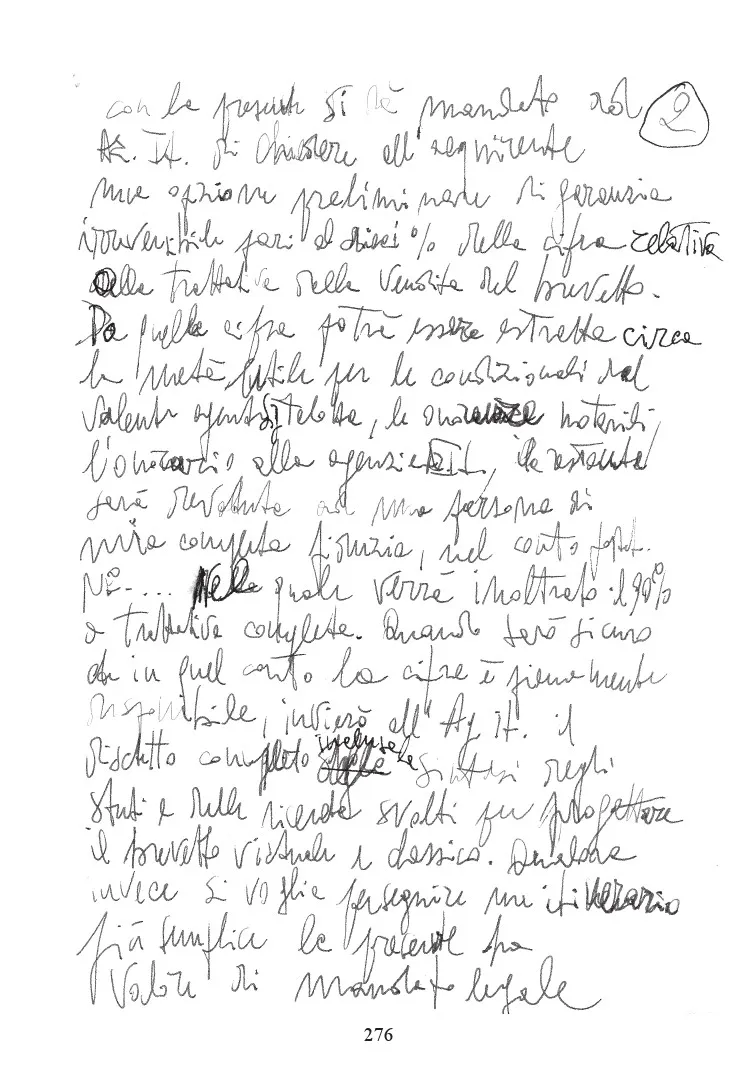 con la presente si dà mandato ad 2
Az. It. di chiedere all'acquirente
una opzione preliminare di garanzia
irreversibile pari al dieci % della cifra relativa
alla trattativa della vendita del brevetto.
Da quella cifra potrà essere estratta circa
la metà utile per le condizionali del
valente agente, le notarili,
l'onorario alla agenzia It., la restante
sarà devoluta ad una persona di
mia completa fiducia, nel conto
N°-.... Nella quale verrà inoltrato il 90%
a trattativa completa. Quando sarò sicuro
che in quel conto la cifra è pienamente
disponibile, invierò all'Ag. It. il
completo inclusa la sintesi degli
studi e delle ricerche svolti per progettare
il brevetto virtuale e classico. Qualora
invece si voglia perseguire un itinerario
più semplice la presente ha
valore di mandato legale
276